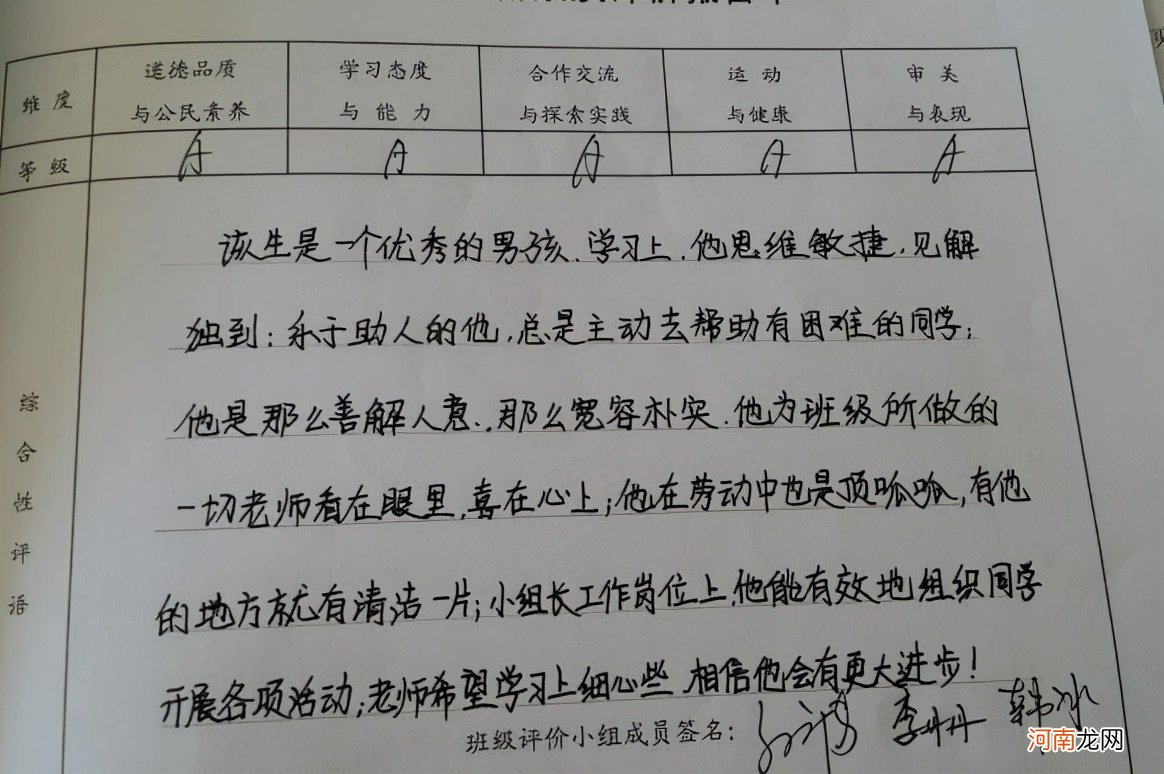 维度
道德品质
与公民素养
学习态度
与能力
合作交流
与探索实践
运动
与健康
审美
与表现
等级
A
A
A
A
A
综合性评语
该生是一个优秀的男孩.学习上.他思维敏捷.见解
独到;乐于助人的他,总是主动去帮助有困难的同学;
他是那么善解人意.,那么宽容朴实.他为班级所做的
一切老师看在眼里,喜在心上;他在劳动中也是顶呱呱,有他
的地方就有清洁一片;小组长工作岗位上.他能有效地组织同学
开展各项活动;老师希望学习上细心些.相信他会有更大进步!
班级评价小组成员签名:
李丹丹
韩冰
河南龙网